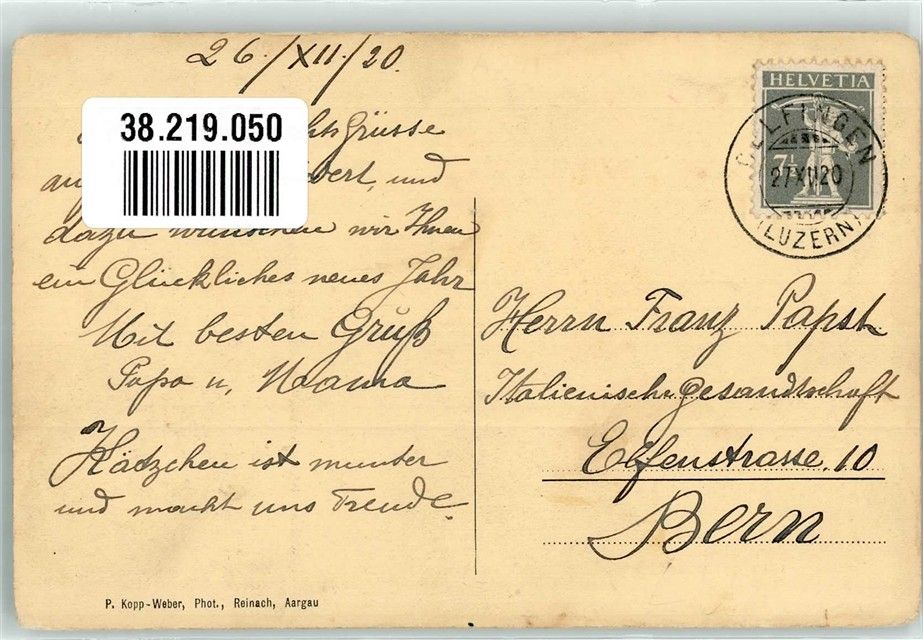 26./XII./20.
38.219.050
htsGrüsse
und
dazu wünschen wir Ihnen
ein Glückliches neues Jahr
Mit besten Gruß
Papa u, Mama
Kätzchen ist munter
und macht uns Freude.
P. Kopp-Weber, Phot., Reinach, Aargau
HELVETIA
7½
GELFINGEN
27XII20
(LUZERN)
Herrn Franz Papst
Italienische Gesandtschaft
Elfenstrasse. 10
Bern